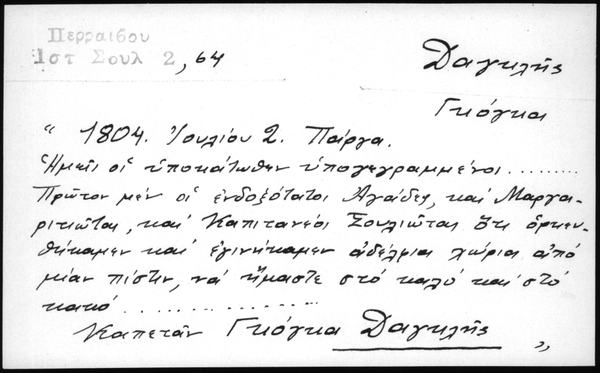 Περραιβου
1στ Σουλ 2, 64
Δαγκλῆς
Γκόγκα
“ 1804. Ἰουλίου 2. Πάργα.
Ἡμεῖς οἱ ὑποκάτωθεν ὑπογεγραμμένοι .........
Πρῶτον μέν οἱ ἐνδοξότατοι Ἀγάδες, καί Μαργα-
ριτιῶται, καί Καπιτανέοι Σουλιῶται ὅτι ὁρκισ-
θήκαμεν καί ἐγινήκαμεν ἀδέλφια χώρια ἀπό
μίαν πίστιν, νά ἤμαστε στό καλό καί στό
κακό ..............
Καπετάν Γκόγκα Δαγκλῆς „